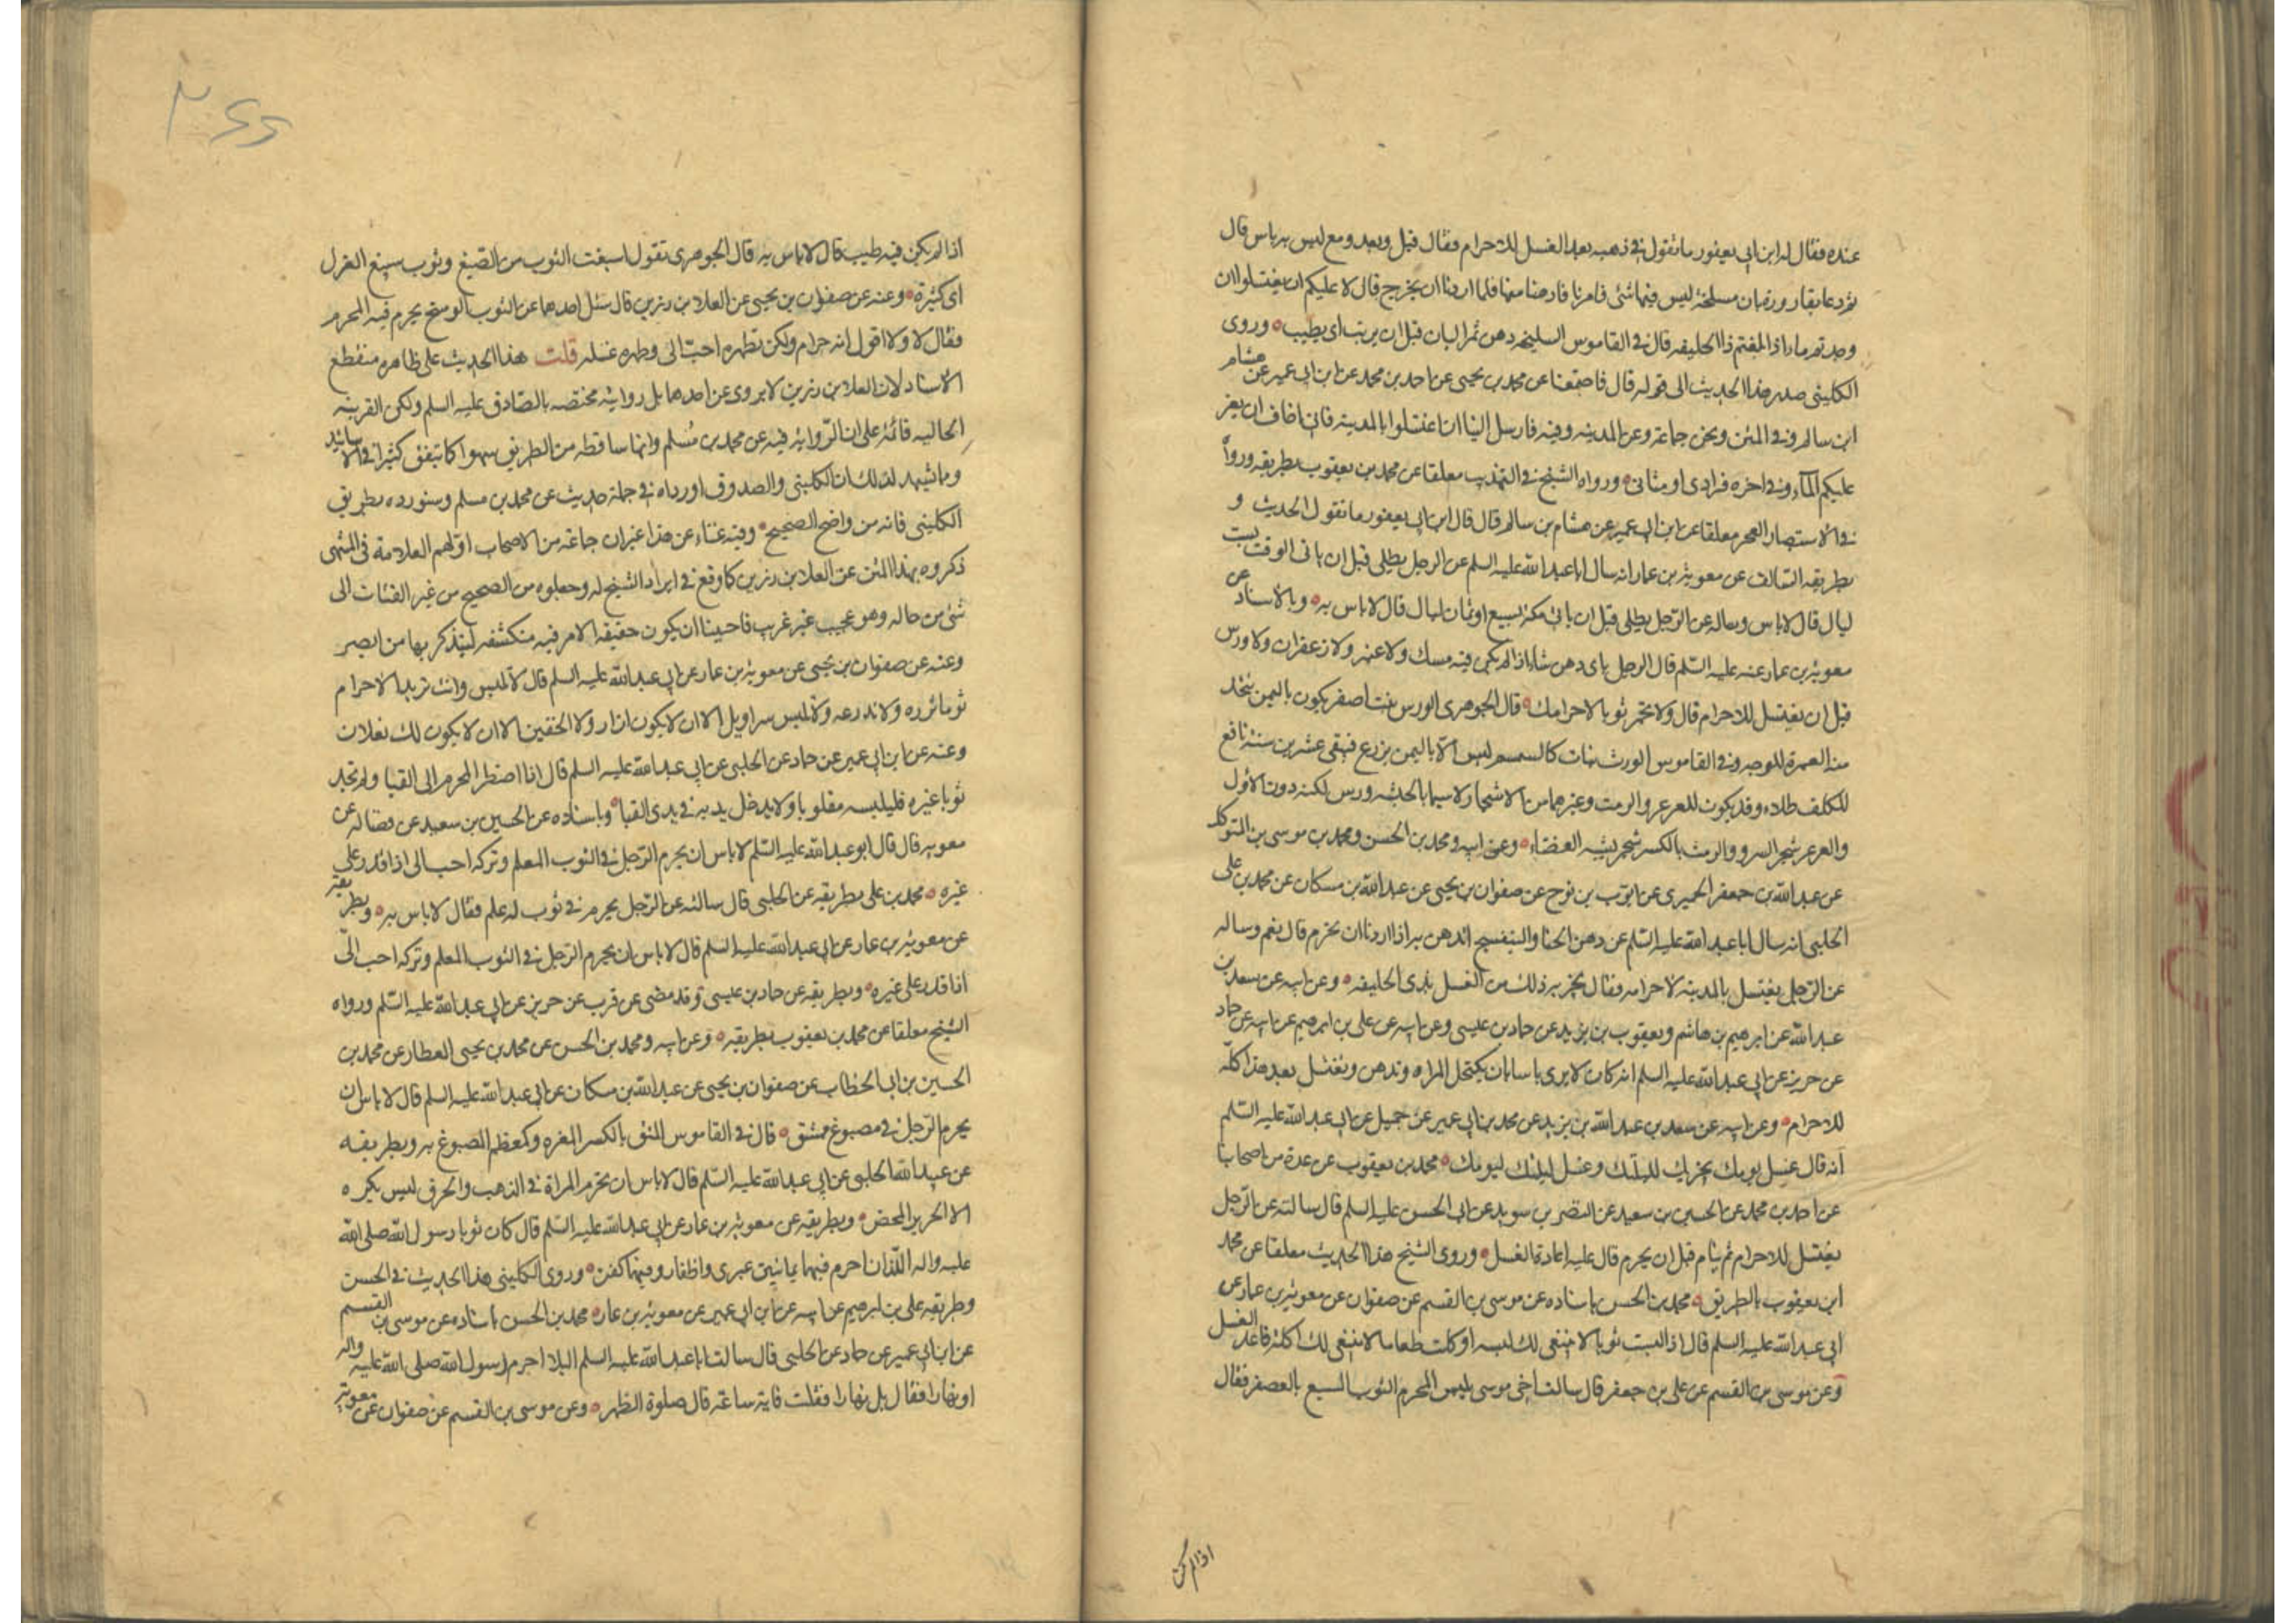 عنده فقال له ابن ابي يعفور ما تقول في دهنه بعد الغسل للاحرام فقال قبل وبعد ومع ليس به باس قال
ثم دعا بقارورة بان سليخة ليس فيها شئ فامرنا فادهنا منها فلما اردنا ان نخرج قال لا عليكم ان تغتسلوا ان
وجدتم ماء اذا بلغتم ذا الحليفه قال في القاموس السليخه دهن ثمر البان قبل ان يربب اي يطيب وروى
الكليني صدر هذا الحديث الى قوله قال فاجتمعنا عن محمد بن يحيى عن احمد بن محمد عن ابن ابي عمير عن هشام
ابن سالم وفي المتن ونحن جماعة وعن المدينه وفيه فارسل الينا ان اغتسلوا بالمدينة فاني اخاف ان يعز
عليكم الماء وفي اخره فرادى او مثانى ورواه الشيخ في التهذيب معلقا عن محمد بن يعقوب بطريقه ورواه
في الاستبصار العجز معلقا عن ابن ابي عمير عن هشام بن سالم قال قال ابن ابي يعفور ما تقول الحديث و
بطريقه السالف عن معوية بن عمار انه سال ابا عبد الله عليه السلم عن الرجل يطلي قبل ان ياتي الوقت بست
ليال قال لاباس وساله عن الرجل يطلي قبل ان ياتي مكة بسبع او ثمان ليال قال لاباس به وبالاسناد عن
معوية بن عمار عنه عليه السلم قال الرجل باي دهن شاء اذا لم يكن فيه مسك ولا عنبر ولا زعفران ولا ورس
قبل ان يغتسل للاحرام قال ولا تجمر ثوبا لاحرامك قال الجوهري الورس نبت اصفر يكون باليمن يتخذ
منه الغمرة للوجه وفي القاموس الورس نبات كالسمسم ليس الا باليمن يزرع فيبقى عشرين سنة نافع
للكلف طلاء وقد يكون للعرعر والرمث وغيرهما من الاشجار لا سيما بالحبشه ورس لكنه دون الاول
والعرعر شجر السرو والرمث بالكسر شجر يشبه الغضاء وعن ابيه ومحمد بن الحسن ومحمد بن موسى بن المتوكل
عن عبد الله بن جعفر الحميري عن ايوب بن نوح عن صفوان بن يحيى عن عبد الله بن مسكان عن محمد بن علي
الحلبي انه سال ابا عبد الله عليه السلم عن دهن الحنا والبنفسج اندهن به اذا اردنا ان نحرم قال نعم وساله
عن الرجل يغتسل بالمدينه لاحرامه فقال يجزيه ذلك من الغسل بذي الحليفه وعن ابيه عن سعد بن
عبد الله عن ابرهيم بن هاشم ويعقوب بن يزيد عن حماد بن عيسى وعن ابيه عن علي بن ابرهيم عن ابيه عن حماد
عن حريز عن ابي عبد الله عليه السلم انه كان لا يرى باسا بان تكتحل المراه وتدهن وتغتسل بعد هذا كله
للاحرام وعن ابيه عن سعد بن عبد الله بن يزيد عن محمد بن ابي عمير عن جميل عن ابي عبد الله عليه السلم
انه قال غسل يومك يجزيك لليلتك وغسل ليلتك ليومك محمد بن يعقوب عن عدة من اصحابنا
عن احمد بن محمد عن الحسين بن سعيد عن النضر بن سويد عن ابي الحسن عليه السلم قال سالته عن الرجل
يغتسل للاحرام ثم ينام قبل ان يحرم قال عليه اعادة الغسل وروى الشيخ هذا الحديث معلقا عن محمد
ابن يعقوب بالطريق محمد بن الحسن باسناده عن موسى بن القسم عن صفوان عن معوية بن عمار عن
ابي عبد الله عليه السلم قال اذا لبست ثوبا لا ينبغي لك لبسه او اكلت طعاما لا ينبغي لك اكله فاعد الغسل
وعن موسى بن القسم عن علي بن جعفر قال سالت اخي موسى يلبس المحرم الثوب المسبع بالعصفر فقال
اذا لم يكن
٢٤٤
اذا لم يكن فيه طيب قال لاباس به قال الجوهري تقول اسبغت الثوب من الصبغ وثوب سبيغ الغزل
اي كثيره وعنه عن صفوان بن يحيى عن العلاء بن رزين قال سئل احدهما عن الثوب الوسخ يحرم فيه المحرم
فقال لا ولا اقول انه حرام ولكن تطهره احب الى وطهره غسله قلت هذا الحديث على ظاهره منقطع
الاسناد لان العلاء بن رزين لا يروى عن احدهما بل روايته مختصه بالصادق عليه السلم ولكن القرينه
الحاليه قائمة على ان الروايه فيه عن محمد بن مسلم وانها ساقطه من الطريق سهوا كما يتفق كثيرا في الاسانيد
ومما يشهد لذلك ان الكليني والصدوق اورداه في جملة حديث عن محمد بن مسلم وسنورده بطريق
الكليني فانه من واضح الصحيح وفيه غناء عن هذا غير ان جماعة من الاصحاب اولهم العلامة في المنتهى
ذكروه بهذا المتن عن العلاء بن رزين كما وقع في ايراد الشيخ له وجعلوه من الصحيح من غير التفات الى
شئ من حاله وهو عجيب غير غريب فاحببنا ان يكون حقيقة الامر فيه منكشفه ليتذكر بها من ابصر
وعنه عن صفوان بن يحيى عن معوية بن عمار عن ابي عبد الله عليه السلم قال لا تلبس وانت تريد الاحرام
ثوبا تزره ولا تدرعه ولا تلبس سراويل الا ان لا يكون ازار ولا الخفين الا ان لا يكون لك نعلان
وعنه عن ابن ابي عمير عن حماد عن الحلبي عن ابي عبد الله عليه السلم قال اذا اضطر المحرم الى القبا ولم تجد
ثوبا غيره فليلبسه مقلوبا ولا يدخل يديه في يدي القبا وباسناده عن الحسين بن سعيد عن فضاله عن
معويه قال قال ابو عبد الله عليه السلم لاباس ان يحرم الرجل في الثوب المعلم وتركه احب الى اذا قدر على
غيره محمد بن علي بطريقه عن الحلبي قال سالته عن الرجل يحرم في ثوب له علم فقال لاباس به وبطريقه
عن معوية بن عمار عن ابي عبد الله عليه السلم قال لاباس ان يحرم الرجل في الثوب المعلم وتركه احب الي
اذا قدر على غيره وبطريقه عن حماد بن عيسى وقد مضى عن قرب عن حريز عن ابي عبد الله عليه السلم ورواه
الشيخ معلقا عن محمد بن يعقوب بطريقه وعن ابيه ومحمد بن الحسن عن محمد بن يحيى العطار عن محمد بن
الحسين بن ابي الخطاب عن صفوان بن يحيى عن عبد الله بن مسكان عن ابي عبد الله عليه السلم قال لاباس ان
يحرم الرجل في مصبوغ ممشق قال في القاموس المشق بالكسر المغره وكمعظم المصبوغ به وبطريقه
عن عبيد الله الحلبي عن ابي عبد الله عليه السلم قال لاباس ان تحرم المراة في الذهب والخز وليس يكره
الا الحرير المحض وبطريقه عن معوية بن عمار عن ابي عبد الله عليه السلم قال كان ثوبا رسول الله صلى الله
عليه واله اللذان احرم فيهما يمانيين عبري واظفار وفيهما كفن وروى الكليني هذا الحديث في الحسن
وطريقه علي بن ابرهيم عن ابيه عن ابن ابي عمير عن معوية بن عمار محمد بن الحسن باسناده عن موسى بن القسم
عن ابن ابي عمير عن حماد عن الحلبي قال سالت ابا عبد الله عليه السلم اليلا احرم رسول الله صلى الله عليه واله
او نهارا فقال بل نهارا فقلت فاية ساعة قال صلوة الظهر وعن موسى بن القسم عن صفوان عن معوية